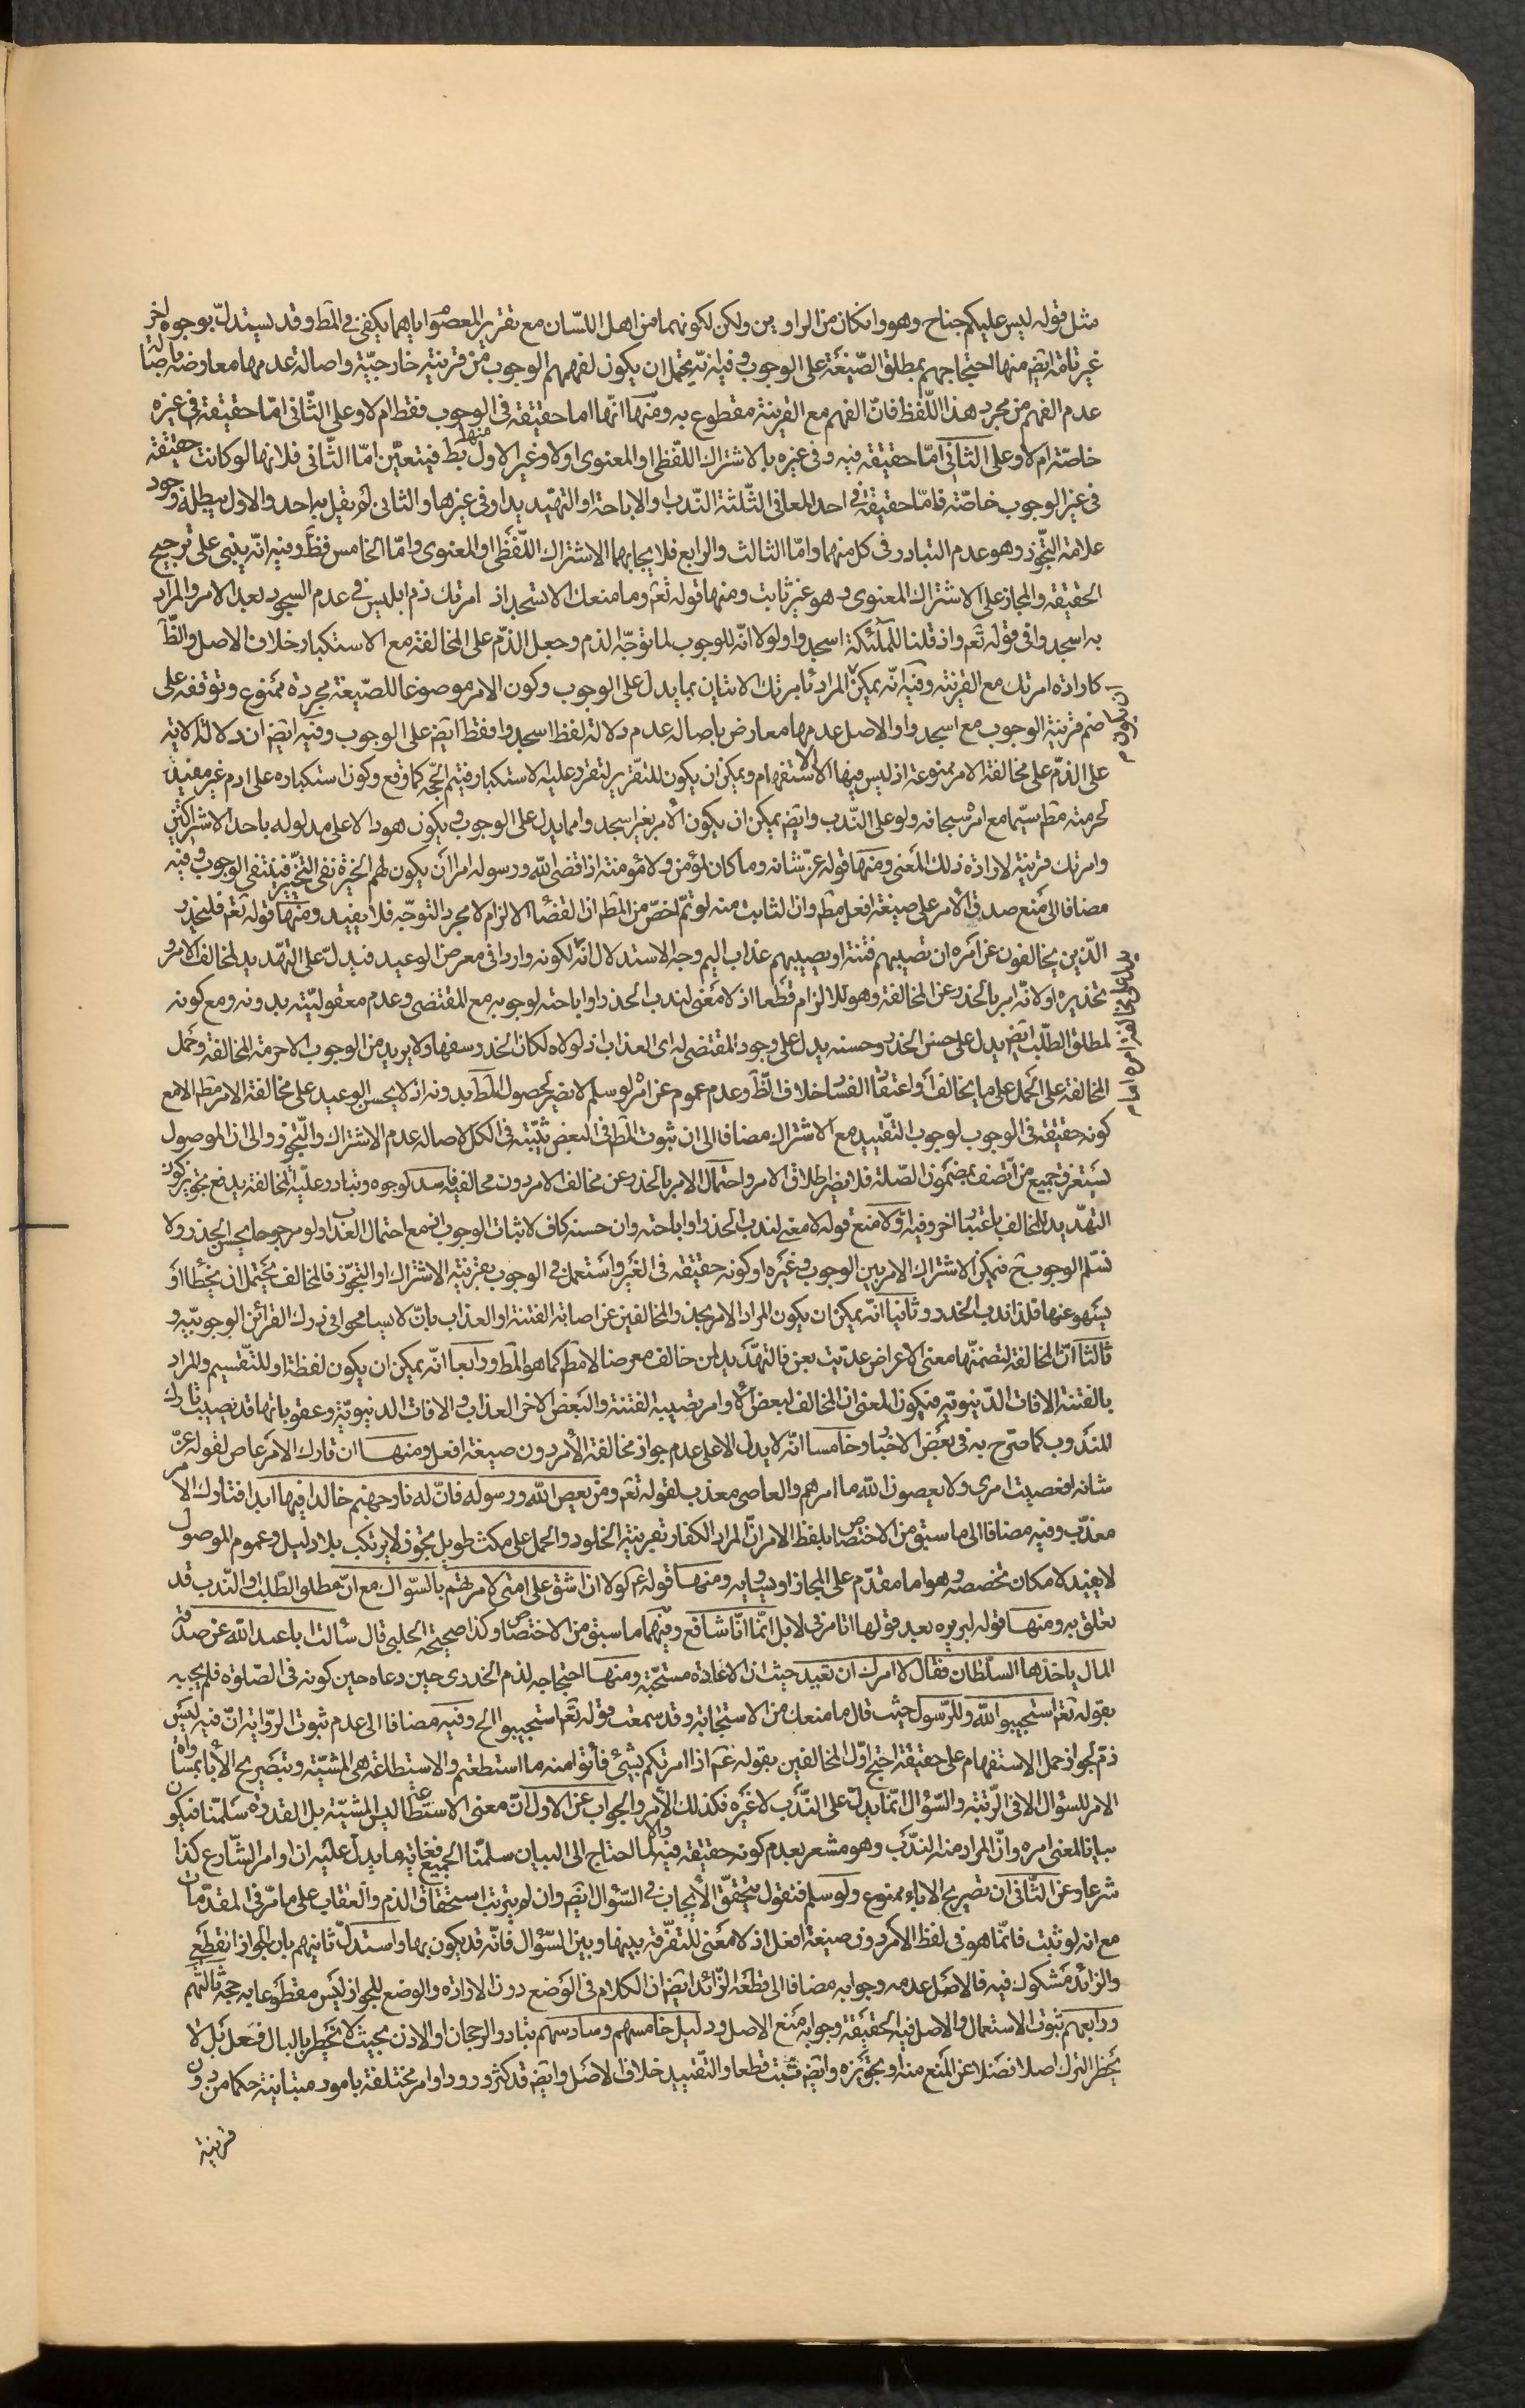 مثل قوله ليس عليكم جناح وهو وان كان من الراويين ولكن لكونهما من اهل اللسان مع تقرير المعصوم اياهما يكفي في المط وقد يستدل بوجوه اخر
غير تامة ايض منها احتجاجهم بمطلق الصيغة على الوجوب وفيه انه يحتمل ان يكون لفهمهم الوجوب من قرينة خارجية واصالة عدمها معارضة باصالة
عدم الفهم من مجرد هذا اللفظ فان الفهم مع القرينة مقطوع به ومنها انها اما حقيقة في الوجوب فقط ام لا وعلى الثاني اما حقيقة في غيره
خاصة ام لا وعلى الثاني اما حقيقة فيه وفي غيره بالاشتراك اللفظي او المعنوي اولا وغير الاول منها بط فيتعين اما الثاني فلانها لو كانت حقيقة
في غير الوجوب خاصة فاما حقيقة في احد المعاني الثلثة الندب او الاباحة او التهديد او في غيرها والثاني لم يقل به احد والاول يبطله وجود
علامة التجوز وهو عدم التبادر في كل منهما واما الثالث والرابع فلايجابهما الاشتراك اللفظي او المعنوي واما الخامس فظ وفيه انه يبني على ترجيح
الحقيقة والمجاز على الاشتراك المعنوي وهو غير ثابت ومنها قوله تعم وما منعك الا تسجد اذ امرتك ذم ابليس في عدم السجود بعد الامر والمراد
به اسجدوا في قوله تعم واذ قلنا للملئكة اسجدوا ولولا انه للوجوب لما توجه الذم وجعل الذم على المخالفة مع الاستكبار خلاف الاصل والظ
كارادة امرتك مع القرينة وفيه انه يمكن المراد بامرتك الاتيان بما يدل على الوجوب وكون الامر موضوعا للصيغة مجردة ممنوع وتوقفه على
ضم قرينة الوجوب مع اسجدوا والاصل عدمها معارض باصالة عدم دلالة لفظ اسجدوا فقط ايض على الوجوب وفيه ايض ان دلالة الاية
على الذم على مخالفة الامر ممنوعة اذ ليس فيها الا الاستفهام ويمكن ان يكون للتقرير لتفرد عليه الاستكبار فيتم الحجه كما وقع وكون استكباره على ادم غير مفيد
لحرمته مط سيما مع امر سبحانه ولو على الندب وايض يمكن ان يكون الامر بغير اسجدوا مما يدل على الوجوب ويكون هو دالا على مدلوله باحد الاشتراكين
وامرتك قرينة لارادة ذلك المعنى ومنها قوله عز شانه وما كان لمؤمن ولا مؤمنة اذا قضى الله ورسوله امرا ان يكون لهم الخيرة نفى التخيير فينتفي الوجوب وفيه
مضافا الى منع صدق الامر على صيغة افعل مط وان الثابت منه لو تم اخص من المط ان القضاء الالزام لا مجرد التوجه فلا يفيد ومنها قوله تعم فليحذر
الذين يخالفون عن امره ان تصيبهم فتنة او يصيبهم عذاب اليم وجه الاستدلال انه لكونه واردا في معرض الوعيد فيدل على التهديد لمخالف الامر و
تحذيره اولانه امر بالحذر عن المخالفة وهو للالزام قطعا اذ لا معنى لندب الحذر او اباحته لوجوبه مع المقتضى وعدم معقوليته بدونه ومع كونه
لمطلق الطلب ايض يدل على حسن الحذر وحسنه يدل على وجود المقتضى له اى العذاب اذ لولاه لكان الحذر سفها ولا يريد من الوجوب الا حرمة المخالفة وحمل
المخالفة على الحمل على ما يخالف او اعتقاد الفساد خلاف الظ وعدم عموم عن امره لو سلم لا يضر لحصول المط بدونه اذ لا يحسن الوعيد على مخالفة الامر مط الا مع
كونه حقيقة في الوجوب لوجوب التقييد مع الاشتراك مضافا الى ان ثبوت المط في البعض يثبته في الكل لاصالة عدم الاشتراك والتجوز والى ان الموصول
يستغرق جميع من اتصف بمضمون الصلة فلا يضر اطلاق الامر واحتمال الامر بالحذر عن مخالف الامر دون مخالفيه فاسد لوجوه وتبادر علية المخالفة يدفع تجويز كون
التهديد للمخالف باعتبار اخر وفيه اولا منع قوله لا معنى لندب الحذر او اباحته وان حسنه كاف لاثبات الوجوب اذ مع احتمال العذاب ولو مرجوحا يحسن الحذر ولا
نسلم الوجوب ح فيمكن الاشتراك الامر بين الوجوب وغيره او كونه حقيقة في الغير واستعمل في الوجوب بقرينة الاشتراك او التجوز فالمخالف يحتمل ان يخطأ او
يسهو عنها فلذا ندب الحذر وثانيا انه يمكن ان يكون المراد الامر بحذر المخالفين عن اصابة الفتنة او العذاب بان لا يسامحوا في درك القرائن الوجوبية و
ثالثا ان المخالفة لتضمنها معنى الاعراض عديت بعن فالتهديد لمن خالف معرضا لا مط كما هو المط ورابعا انه يمكن ان يكون لفظة او للتقسيم والمراد
بالفتنة الافات الدنيوية فيكون المعنى ان المخالف لبعض الاوامر تصيبه الفتنة والبعض الاخر العذاب والافات الدنيوية وعقوباتها قد تصيب تارك
المندوب كما صرح به في بعض الاخبار وخامسا انه لا يدل الا على عدم جواز مخالفة الامر دون صيغة افعل ومنها ان تارك الامر عاص لقوله عز
شانه افعصيت امري ولا يعصون الله ما امرهم والعاصي معذب لقوله تعم ومن يعص الله ورسوله فان له نار جهنم خالدا فيها ابدا فتارك الامر
معذب وفيه مضافا الى ما سبق من الاختصاص بلفظ الامر ان المراد الكفار بقرينة الخلود والحمل على مكث طويل تجوز لا يرتكب بلا دليل وعموم الموصول
لا يفيد لامكان تخصصه وهو اما مقدم على المجاز او يساويه ومنها قوله ع لولا ان اشق على امتي لامرتهم بالسواك مع ان مطلق الطلب والندب قد
تعلق به ومنها قوله لبريرة بعد قولها اتامرني لا بل انما انا شافع وفيهما ما سبق من الاختصاص وكذا صحيحة الحلبي قال سألت ابا عبد الله عن صدقة
المال ياخذها السلطان فقال لا امرك ان تعيد حيث ان الاعادة مستحبة ومنها احتجاجه لذم الخدري حين دعاه حين كونه في الصلوة فلم يجبه
بقوله تعم استجيبوا لله وللرسول حيث قال ما منعك من الاستجابة وقد سمعت قوله تعم استجيبوا الخ وفيه مضافا الى عدم ثبوت الرواية ان فيه ليس
ذم لجواز حمل الاستفهام على حقيقته احتج اول المخالفين بقوله عم اذا امرتكم بشئ فأتوا منه ما استطعتم والاستطاعة هي المشية وتبصريح الادباء بمساواة
الامر للسؤال الا في الرتبة والسؤال انما يدل على الندب لا غيره فكذلك الامر والجواب عن الاول ان معنى الاستطاعة ليس المشية بل القدرة سلمنا فيكون
بيانا لمعنى امره وان المراد منه الندب وهو مشعر بعدم كونه حقيقة فيه والا لما احتاج الى البيان سلمنا الجميع فغايته ما يدل عليه ان اوامر الشارع كذا
شرعا وعن الثاني ان تصريح الادباء ممنوع ولو سلم فنقول يتحقق الايجاب في السؤال ايض وان لم يترتب استحقاق الذم والعقاب على ما مر في المقدمات
مع انه لو ثبت فانما هو في لفظ الامر دون صيغة افعل اذ لا معنى للتفرقة بينها وبين السؤال فانه قد يكون بها واستدل ثانيهم بان الجواز انقطع
والزائد مشكوك فيه فالاصل عدمه وجوابه مضافا الى قطعه الزائد ايض ان الكلام في الوضع دون الارادة والوضع للجواز ليس مقطوعا به حجة ثالثهم
ورابعهم ثبوت الاستعمال والاصل فيه الحقيقة وجوابه منع الاصل ودليل خامسهم وسادسهم تبادر الرجحان او الاذن بحيث لا يخطر بالبال فعل بل لا
يخطر الترك اصلا فضلا عن المنع منه او تجويزه وايض ثبت قطعا والتقييد خلاف الاصل وايض قد كثر ورود اوامر مختلفة بامور متباينة حكما من دون
قرينة